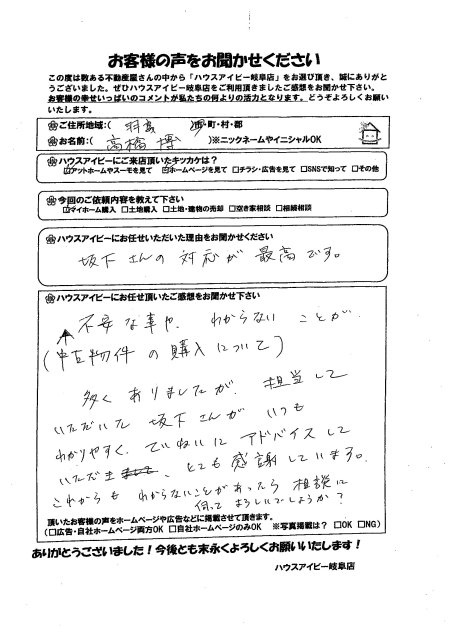 お客様の声をお聞かせください
この度は数ある不動産屋さんの中から「ハウスアイビー岐阜店」をお選び頂き、誠にありがと
うございました。ぜひハウスアイビー岐阜店をご利用頂きましたご感想をお聞かせ下さい。
お客様の幸せいっぱいのコメントが私たちの何よりの活力となります。どうぞよろしくお願い
いたします。
ご住所地域:( 羽島 市・町・村・郡
お名前:( 高橋 博 )※ニックネームやイニシャルOK
ハウスアイビーにご来店頂いたキッカケは?
☑アットホームやスーモを見て ☑ホームページを見て □チラシ・広告を見て □SNSで知って □その他
今回のご依頼内容を教えて下さい
☑マイホーム購入 □土地購入 □土地・建物の売却 □空き家相談 □相続相談
ハウスアイビーにお任せいただいた理由をお聞かせください
坂下さんの対応が最高です。
ハウスアイビーにお任せ頂いたご感想をお聞かせ下さい
不安な事や、わからないことが、
(中古物件の購入について)
多くありましたが、担当して
いただいた坂下さんがいつも
わかりやすく、ていねいにアドバイスして
いただき、とても感謝しています。
これからもわからないことがあったら相談に
伺ってよろしいでしょうか?
頂いたお客様の声をホームページや広告などに掲載させて頂きます。
(□広告・自社ホームページ両方OK □自社ホームページのみOK ※写真掲載は? □OK □NG)
ありがとうございました!今後とも末永くよろしくお願いいたします!
ハウスアイビー岐阜店